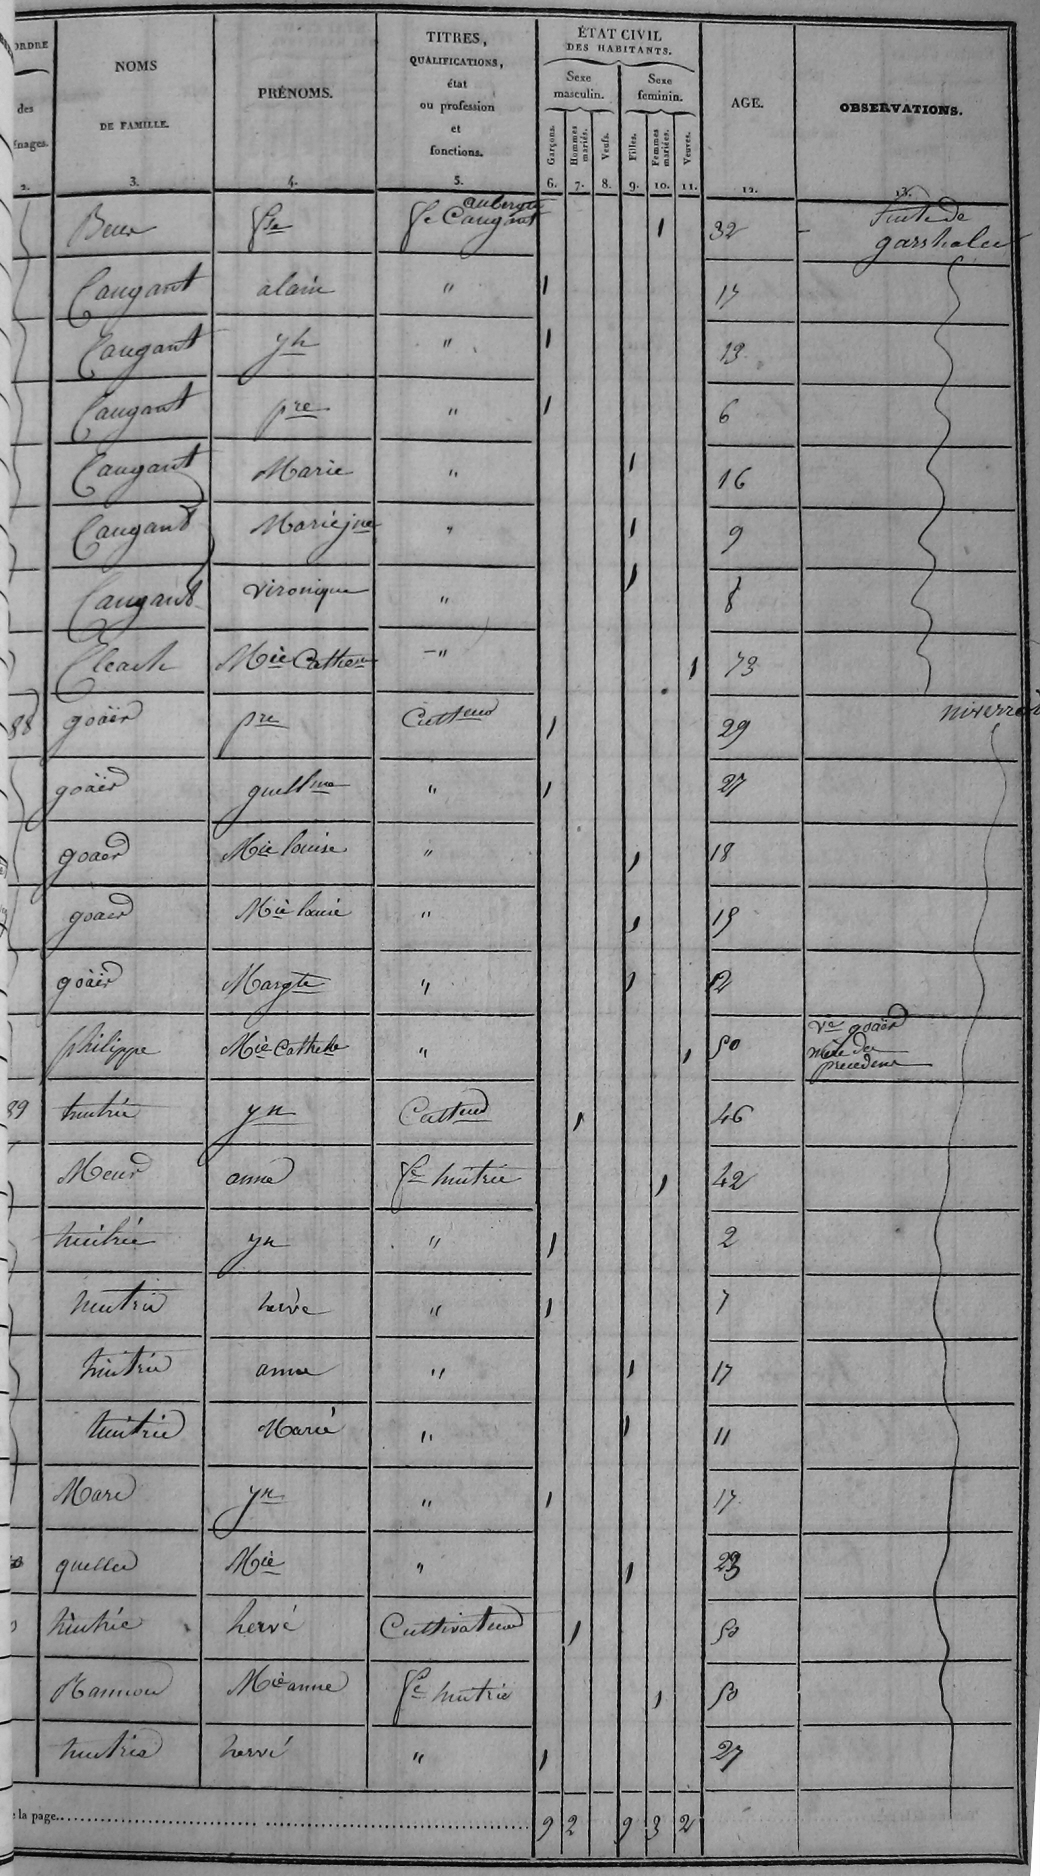 ORDRE
des
énages.
2.
NOMS
DE FAMILLE.
3.
PRÉNOMS.
4.
TITRES,
QUALIFICATIONS,
état
ou profession
et
fonctions.
5.
ÉTAT CIVIL
DES HABITANTS.
Sexe
masculin.
Sexe
feminin.
Garçons.
Hommes mariés.
Veufs.
Filles.
Femmes mariées.
Veuves.
6. 7. 8. 9. 10. 11.
AGE.
12.
OBSERVATIONS.
13.
fse fe Caugant 1 32
Caugant alain " 1 17
Caugant yh " 1 13
Caugant pre " 1 6
Caugant Marie " 1 16
Caugant Marie jne " 1 9
Caugant vironique " 1 8
Cleach Mie Cathe " 1 73
88 goäer pre Culteur 1 29
goäer guellme " 1 27
goaer Mie louise " 1 18
goaer Mie louise " 1 15
goäer Margte " 1 12
philippe Mie Cathe " 1 50 ve goaer
mère des
precedens
89 yn Culteur 1 46
Meur anne fe 1 42
yn " 1 2
hervé " 1 7
anne " 1 17
Marie " 1 11
Marc yn " 1 17
queller Mie " 1 23
hervé Cultivateur 1 50
Mie anne fe 1 50
hervé " 1 27
la page 9 2 9 3 2